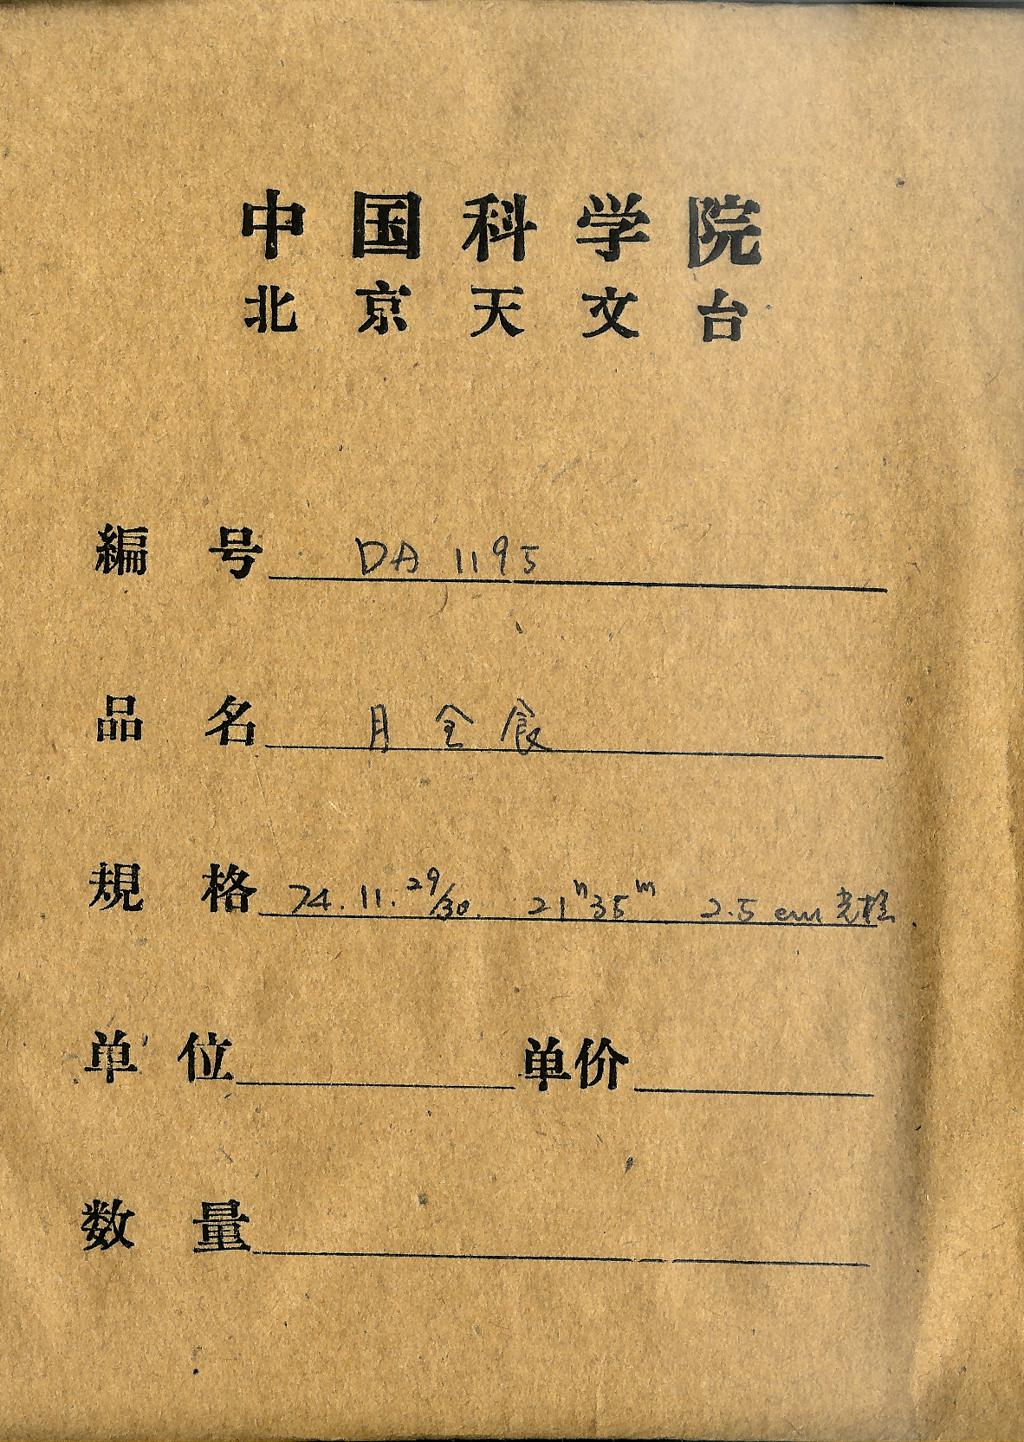 中国科学院
北京天文台
編号 DA 1195
品名 月全食
規格 74.11.29/30. 21h35m 2.5 cm 光栏
单位 单价
数量